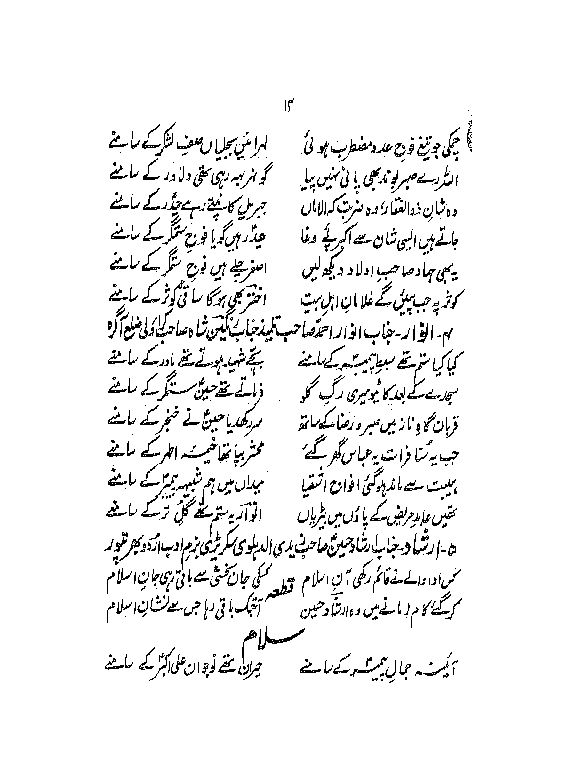 ۱۳
چمکی جو تیغ فوج عدو مضطرب ہوئی لہرائیں بجلیاں صفِ لشکر کے سامنے
اللہ رے صبر بوند بھی پانی نہیں پیا گو نہر بہہ رہی تھی دلاور کے سامنے
وہ شانِ ذوالفقار وہ ضربت کہ الاماں جبریل کانپتے رہے حیدر کے سامنے
جاتے ہیں ایسی شان سے اکبر پئے وغا حیدر ہیں گویا فوج ستمگر کے سامنے
یہ بھی جہاد صاحب اولاد دیکھ لیں اصغر چلے ہیں فوج ستمگر کے سامنے
کوثر پہ جب پئیں گے غلامانِ اہل بیت اختر بھی ہوگا ساقیٔ کوثر کے سامنے
۴- انوار - جناب انوار احمد صاحب تلمیذ جناب شاہ صاحب ضلع آگرہ
کیا کیا ستم تھے سبط پیمبر کے سامنے بچے شہید ہوتے تھے مادر کے سامنے
سجدے کے بعد کاٹیو میری رگِ گلو فرماتے تھے حسین ستمگر کے سامنے
قربان گاہِ ناز میں صبر و رضا کے ساتھ سر رکھدیا حسین نے خنجر کے سامنے
جب یہ سنا فرات پہ عباس گھر گئے محشر بپا تھا خیمۂ اطہر کے سامنے
ہیبت سے ماند ہو گئی افواج اشقیا میداں میں ہم شبیہہ پیمبر کے سامنے
تھیں عابد مریض کے پاؤں میں بیڑیاں انوار یہ ستم تھے گل تر کے سامنے
۵- ارشاد - جناب ارشاد حسین صاحب زیدی الدہلوی سکریٹری بزم ادب اردو بھرتپور
کس ادا والے نے قائم رکھی آنِ اسلام کسکی جاں بخشی سے باقی رہی جانِ اسلام
قطعہ
کر گئے کام زمانے میں وہ ارشاد حسین آجتک باقی رہا جس سے نشانِ اسلام
سلام
آئینہ جمالِ پیمبر کے سامنے حیران تھے نوجوان علی اکبر کے سامنے